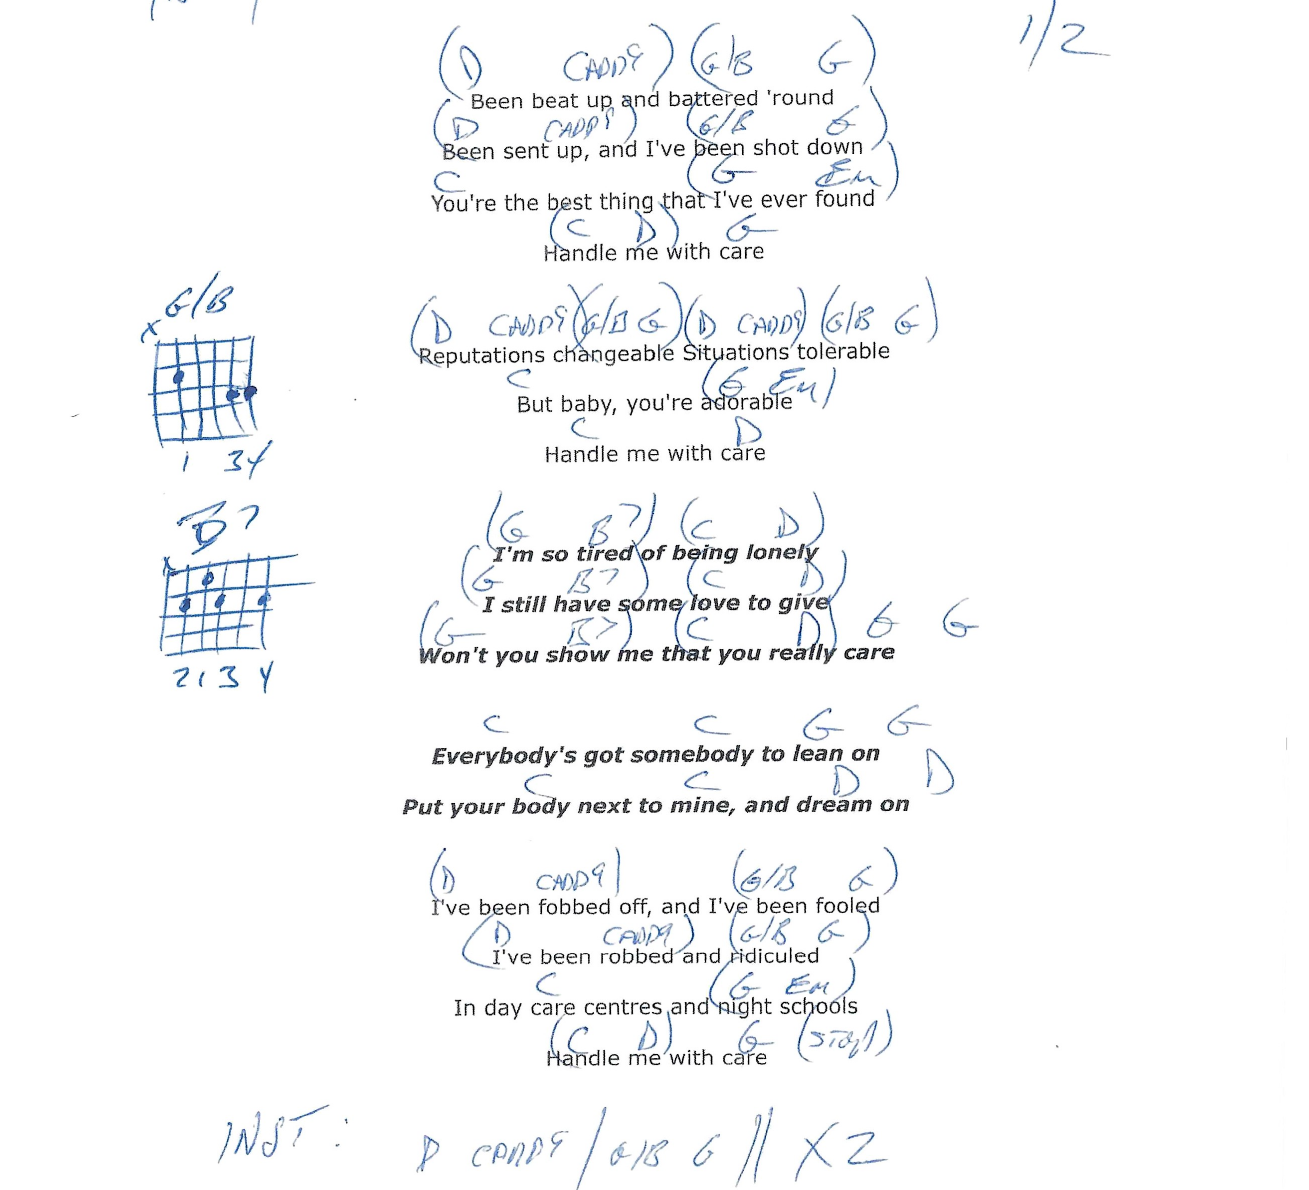 1/2
(D CADD9) (G/B G)
Been beat up and battered 'round
(D CADD9) (G/B G)
Been sent up, and I've been shot down
C (G Em)
You're the best thing that I've ever found
(C D) G
Handle me with care
G/B
x
1 34
(D CADD9)(G/B G)(D CADD9)(G/B G)
Reputations changeable Situations tolerable
C (G Em)
But baby, you're adorable
C D
Handle me with care
B7
x
213 4
(G B7) (C D)
I'm so tired of being lonely
(G B7) (C D)
I still have some love to give
(G B7) (C D) G G
Won't you show me that you really care
C C G G
Everybody's got somebody to lean on
C C D D
Put your body next to mine, and dream on
(D CADD9) (G/B G)
I've been fobbed off, and I've been fooled
(D CADD9) (G/B G)
I've been robbed and ridiculed
C (G Em)
In day care centres and night schools
(C D) G (STOP)
Handle me with care
INST: D CADD9 / G/B G // X2